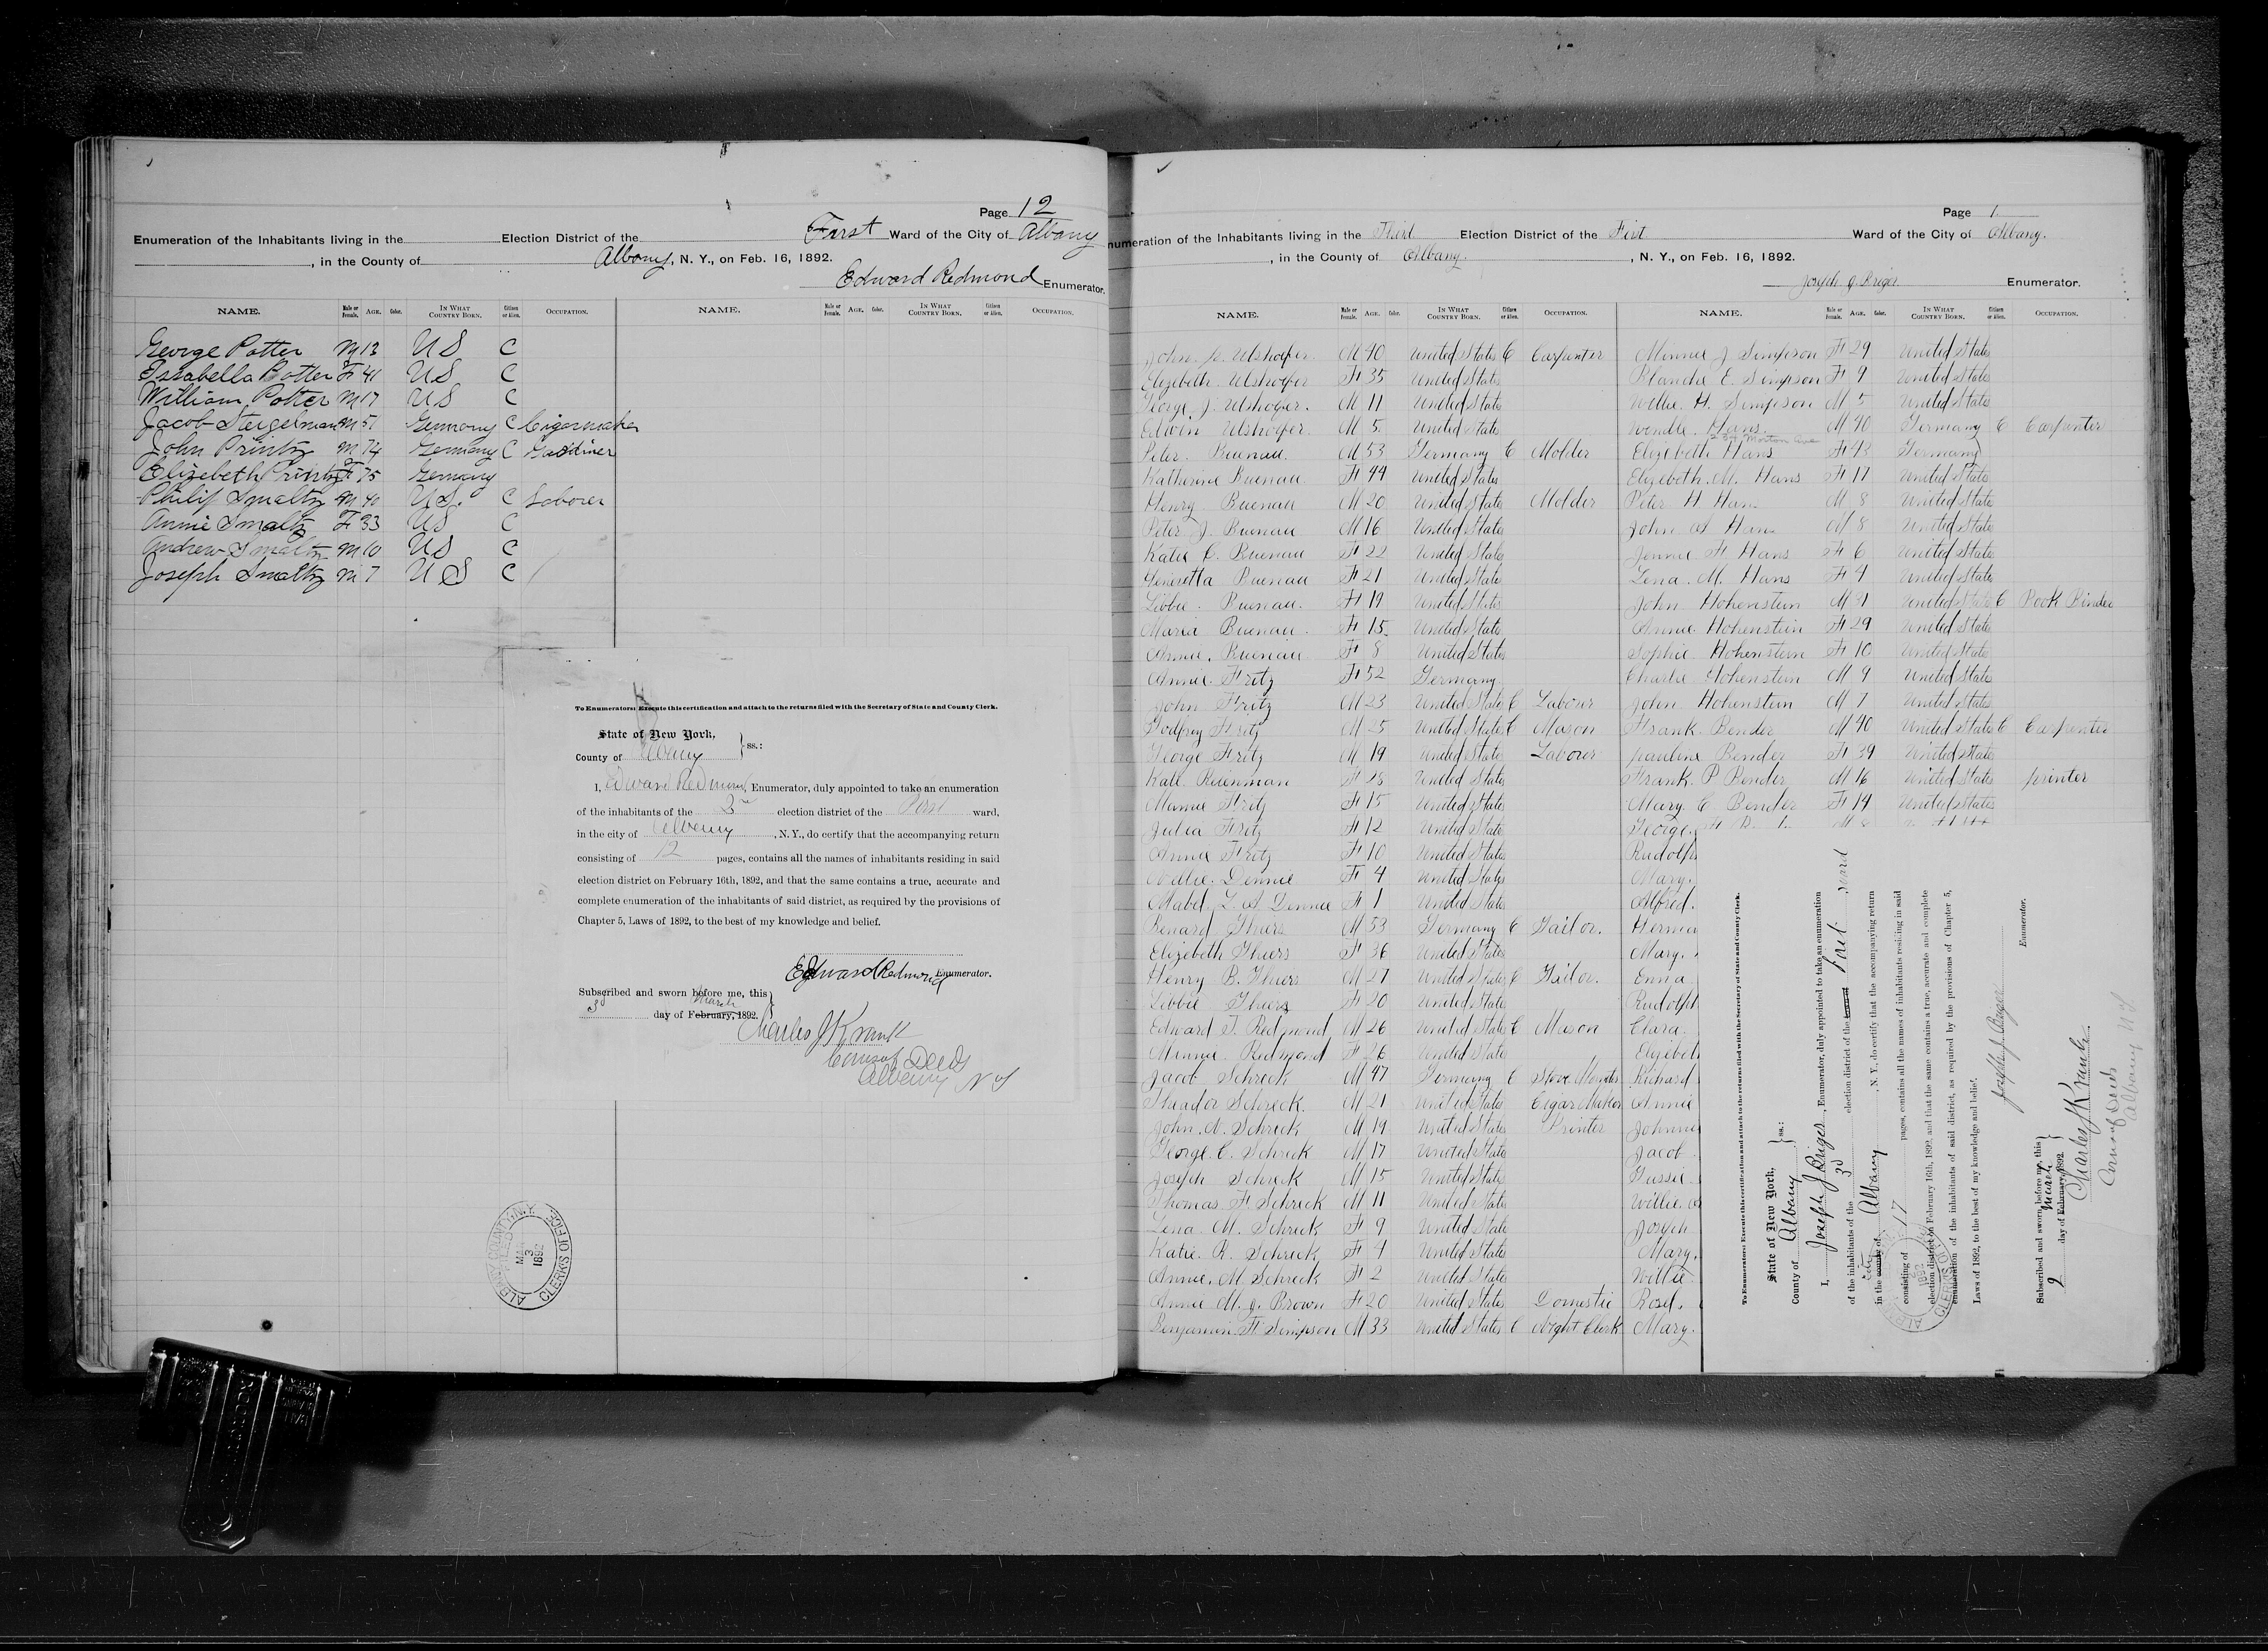 Page 12
Enumeration of the Inhabitants living in the Election District of the First Ward of the City of Albany
, in the County of Albany, N. Y., on Feb. 16, 1892.
Edward Redmond Enumerator.
NAME. Male or Female. AGE. Color. IN WHAT COUNTRY BORN. Citizen or Alien. OCCUPATION. NAME. Male or Female. AGE. Color. IN WHAT COUNTRY BORN. Citizen or Alien. OCCUPATION.
George Potter M 13 US C
Issabella Potter F 41 US C
William Potter M 17 US C
Jacob Steigelman M 51 Germony C Cigarmaker
John Printz M 74 Germany C
Elizebeth Printz F 75 Gemany
Philip Smaltz M 40 US. C Laborer
Annie Smaltz F 33 US C
Andrew Smaltz M 10 US C
Joseph Smaltz M 7 US C
To Enumerators: Execute this certification and attach to the returns filed with the Secretary of State and County Clerk.
State of New York,
County of Albany } ss.:
I, Edward Redmond, Enumerator, duly appointed to take an enumeration
of the inhabitants of the election district of the First ward,
in the city of Albany, N. Y., do certify that the accompanying return
consisting of 12 pages, contains all the names of inhabitants residing in said
election district on February 16th, 1892, and that the same contains a true, accurate and
complete enumeration of the inhabitants of said district, as required by the provisions of
Chapter 5, Laws of 1892, to the best of my knowledge and belief.
Edward Redmond Enumerator.
Subscribed and sworn before me, this
3d day of February, 1892. March
Charles J Krank
Com of Deeds
Albany N Y
ALBANY COUNTY, N.Y.
MAR 3 1892
CLERK'S OFFICE
Page 1.
numeration of the Inhabitants living in the Third Election District of the First Ward of the City of Albany.
, in the County of Albany. , N. Y., on Feb. 16, 1892.
Joseph J. Briger Enumerator.
NAME. Male or Female. AGE. Color. IN WHAT COUNTRY BORN. Citizen or Alien. OCCUPATION. NAME. Male or Female. AGE. Color. IN WHAT COUNTRY BORN. Citizen or Alien. OCCUPATION.
John. C. Ulshoefer. M 40 United States C Carpenter
Elizebeth. Ulshoefer F 35 United States
George J. Ulshoefer. M 11 United States
Edwin Ulshoefer. M 5 United States
Peter. Buenau. M 53 Germany C Molder
Katharine Buenau. F 44 United States
Henry Buenau M 20 United States Molder
Peter J. Buenau M 16 United States
Katie C. Buenau F 22 United States
Heneretta Buenau F 21 United States
Libbie. Buenau. F 19 United States
Maria Buenau. F 15 United States
Annie. Buenau F 8 United States
Annie. Fritz F 52 Germany
John Fritz M 23 United States C Laborer
Godfrey Fritz M 25 United States C Mason
George Fritz M 19 United States Laborer
Kate Reinman F 28 United States
Mamie Fritz F 15 United States
Julia Fritz F 12 United States
Anna Fritz F 10 United States
Dennie F 4 United States
Mabel L. A. Dennie F 1 United States
Benard Thiers M 53 Germany C Tailor.
Elizebeth Thiers F 36 United States
Henry B. Thiers M 27 United States C Tailor.
Libbie Thiers F 20 United States
Edward T. Redmond M 26 United States C Mason
Minnie Redmond F 26 United States
Jacob Schreck M 47 Germany C Stove Mounter
Theador Schreck. M 21 United States Cigar Maker
John. A. Schreck M 19 United States Printer
George. C. Schreck M 17 United States
Joseph Schreck M 15 United States
Thomas F. Schreck M 11 United States
Lena. M. Schreck F 9 United States
Katie. R. Schreck F 4 United States
Annie. M. Schreck F 2 United States
Annie M. J. Brown F 20 United States Domestic
Benjamin. F. Simpson M 33 United States C Night Clerk
Minnie J Simpson F 29 United States
Blanche E. Simpson F 9 United States
Willie. H. Simpson M 5 United States
Wendle. Hans. M 40 Germany C Carpenter
Morton Ave
Elizebeth Hans F 43 Germany
Elizebeth. M. Hans F 17 United States
Peter H Hans M 8 United States
John A Hans M 8 United States
Jennie F Hans F 6 United States
Lena. M. Hans F 4 United States
John Hohenstein M 31 United States C Book Binder
Annie. Hohenstein F 29 United States
Sophie Hohenstein F 10 United States
Charlie Hohenstein M 9 United States
John Hohenstein M 7 United States
Frank Bender M 40 United States C Carpenter
pauline Bender F 39 United States
Frank. P Bender M 16 United States printer
Mary. C Bender F 14 United States
George.
Rudolph
Mary.
Alfred.
Herman
Mary.
Emma
Rudolph
Clara.
Elizebet
Richard
Annie
Johnnie
Jacob
Gussie
Willie.
Joseph
Mary.
Willie
Rose.
Mary.
To Enumerators: Execute this certification and attach to the returns filed with the Secretary of State and County Clerk.
State of New York,
County of Albany } ss.:
I, Joseph J Briger, Enumerator, duly appointed to take an enumeration
of the inhabitants of the 3d election district of the First ward
in the county of city Albany, N. Y., do certify that the accompanying return
consisting of 17 pages, contains all the names of inhabitants residing in said
election district on February 16th, 1892, and that the same contains a true, accurate and complete
enumeration of the inhabitants of said district, as required by the provisions of Chapter 5,
Laws of 1892, to the best of my knowledge and belief.
Joseph J. Briger
Enumerator.
Subscribed and sworn before me, this
2 day of February, 1892. March
Charles J Krank
Com of Deeds
Albany N Y
1892
CLERK'S OFFICE